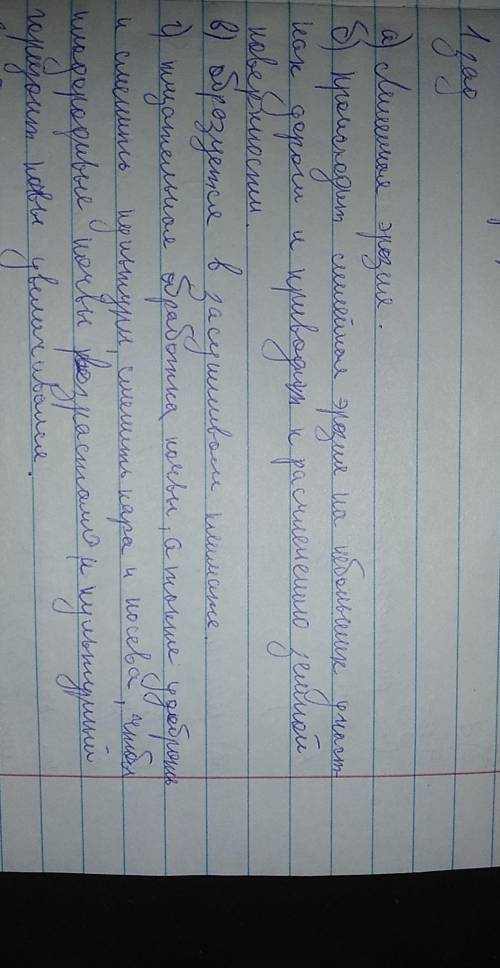 1 зад
а) Линейная эрозия.
б) Происходит линейная эрозия на небольших участ
ках дороги и приводит к расчленению земной
поверхности.
в) образуется в засушливом климате.
г) тщательная обработка почвы, а также удобрять
и сменить культуры, сменить пара и посева, чтобы
плодородивые почвы возрастало и культурный
горизонт почвы увеличивался.